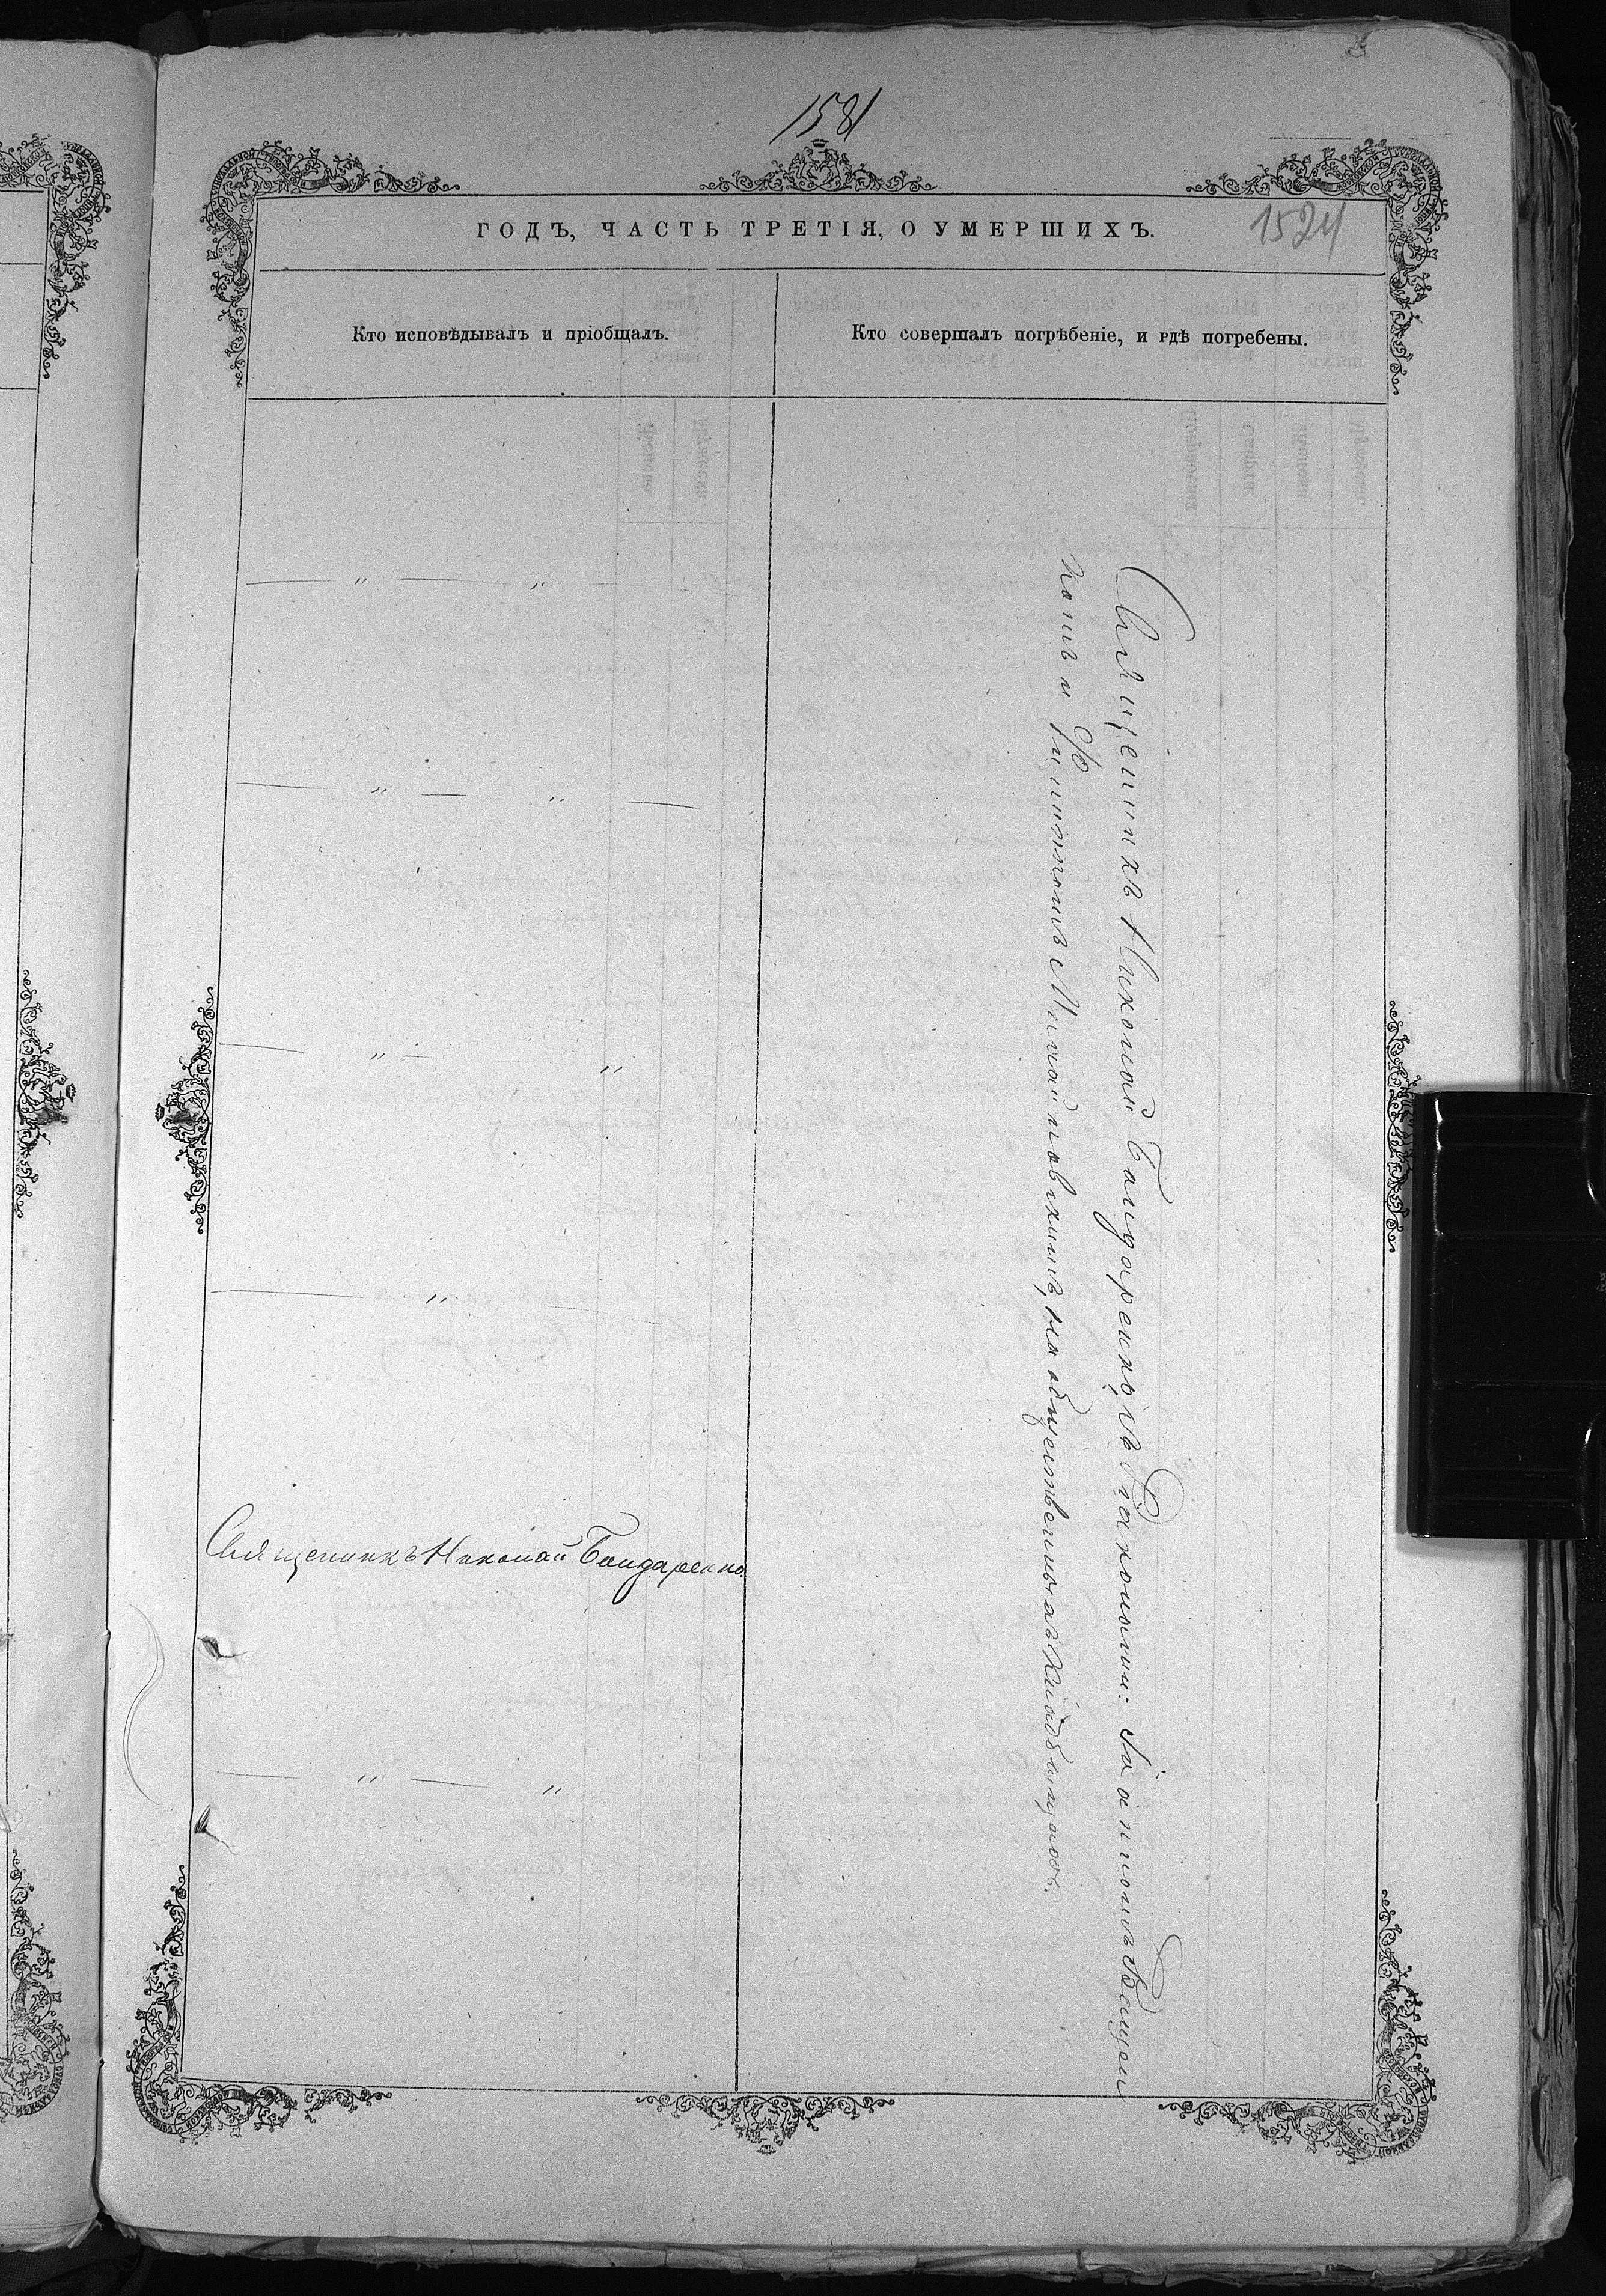 1581
ГОДЪ, ЧАСТЬ ТРЕТІЯ, О УМЕРШИХЪ.
1524
Кто исповѣдывалъ и пріобщалъ.
Кто совершалъ погрѣбеніе, и гдѣ погребены.
— " — " —
— " — " —
— " — "
— " —
Священникъ Николай Бондаренко.
— " — "
Священникъ Николай Бондаренко, съ Діакономъ: Іоанномъ
и Филиппомъ Михайловскимъ, на общественныхъ кладбищахъ.